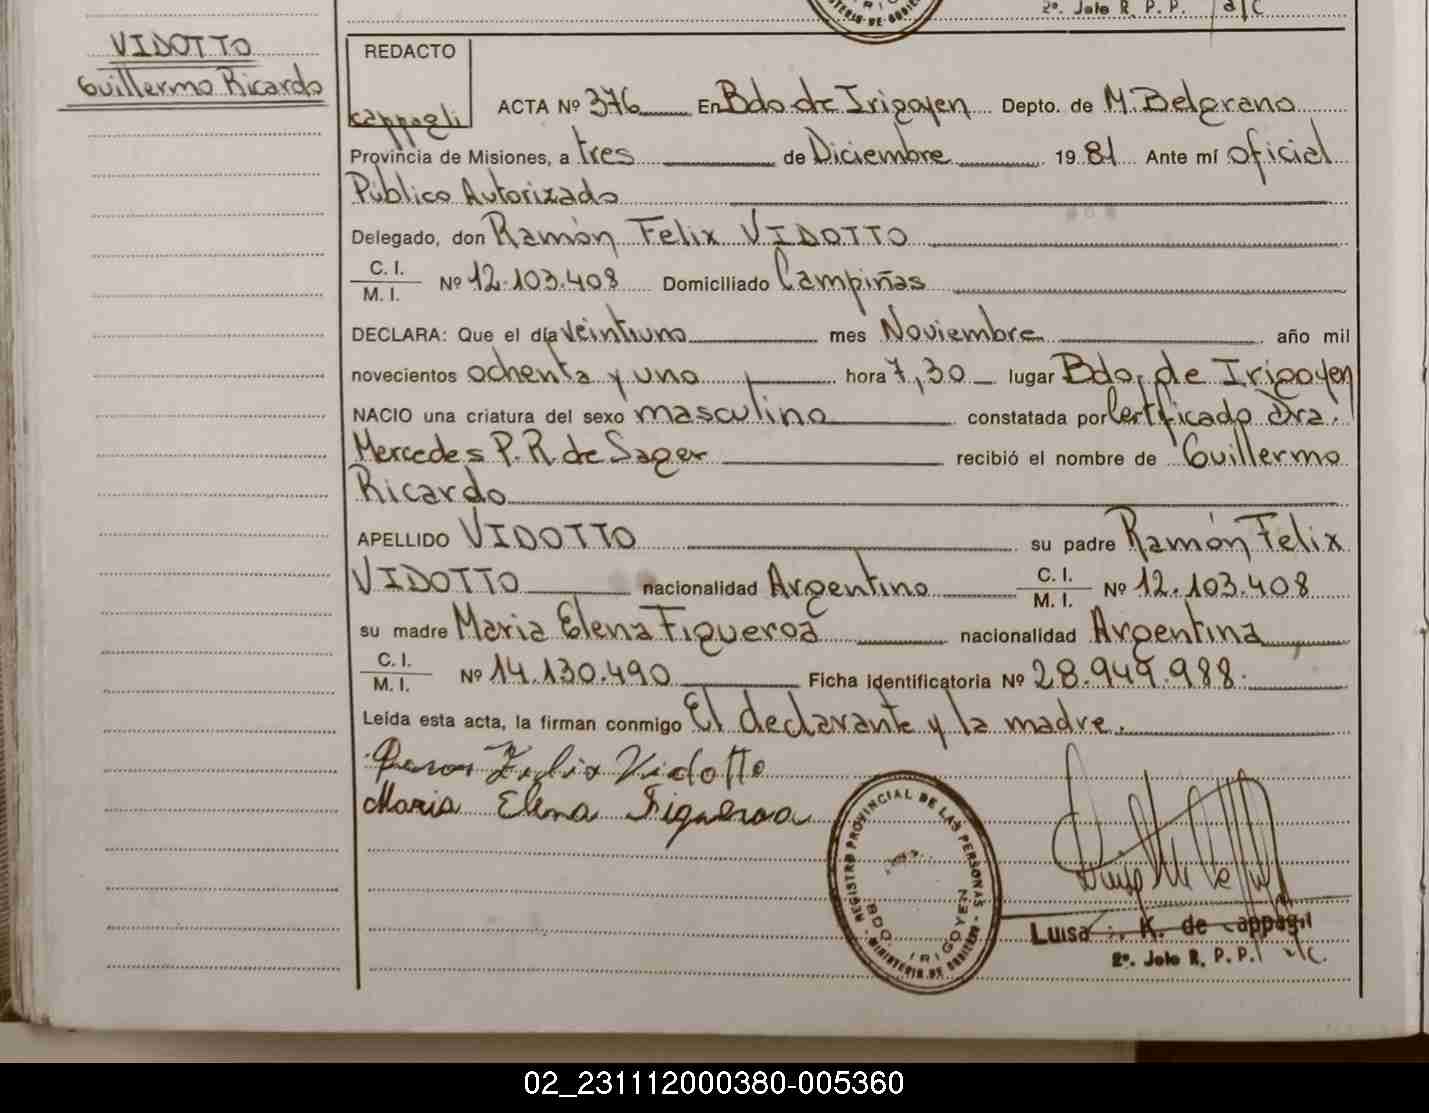 2º. Jefe R. P. P. a/c
VIDOTTO
Guillermo Ricardo
REDACTO
cappagli
ACTA Nº 376 En Bdo de Irigoyen Depto. de M. Belgrano
Provincia de Misiones, a tres de Diciembre 19 81 Ante mí oficial
Público Autorizado
Delegado, don Ramón Felix VIDOTTO
C. I.
M. I. Nº 12.103.408 Domiciliado Campiñas
DECLARA: Que el día veintiuno mes Noviembre año mil
novecientos ochenta y uno hora 7,30 lugar Bdo. de Irigoyen
NACIO una criatura del sexo masculino constatada por Certificado Dra.
Mercedes P. R. de Sager recibió el nombre de Guillermo
Ricardo
APELLIDO VIDOTTO su padre Ramón Felix
VIDOTTO nacionalidad Argentino C. I.
M. I. Nº 12.103.408
su madre Maria Elena Figueroa nacionalidad Argentina
C. I.
M. I. Nº 14.130.490 Ficha Identificatoria Nº 28.949.988.
Leída esta acta, la firman conmigo El declarante y la madre.
Felix Vidotto
Maria Elena Figueroa
REGISTRO PROVINCIAL DE LAS PERSONAS
BDO. IRIGOYEN
MINISTERIO DE GOBIERNO
Luisa K. de Cappagli
2º. Jefe R. P. P. a/c.
02_231112000380-005360